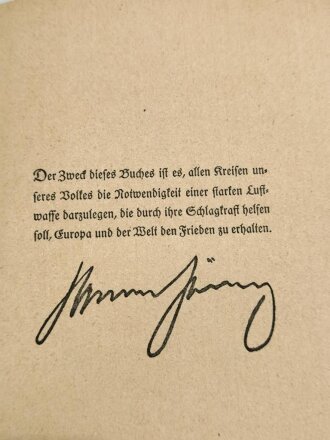 Der Zweck dieses Buches ist es, allen Kreisen un-
seres Volkes die Notwendigkeit einer starken Luft-
waffe darzulegen, die durch ihre Schlagkraft helfen
soll, Europa und der Welt den Frieden zu erhalten.